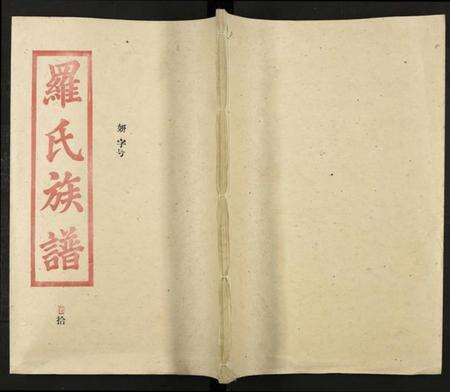 羅氏族譜
妍字号
卷拾